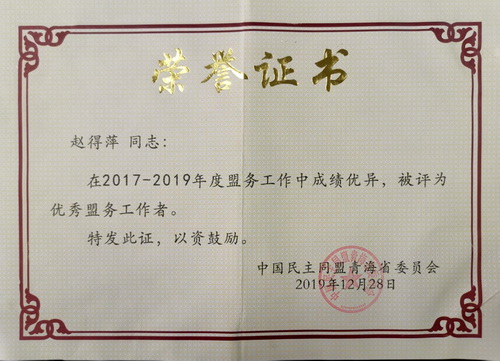 荣誉证书
赵得萍 同志：
在2017-2019年度盟务工作中成绩优异，被评为
优秀盟务工作者。
特发此证，以资鼓励。
中国民主同盟青海省委员会
2019年12月28日